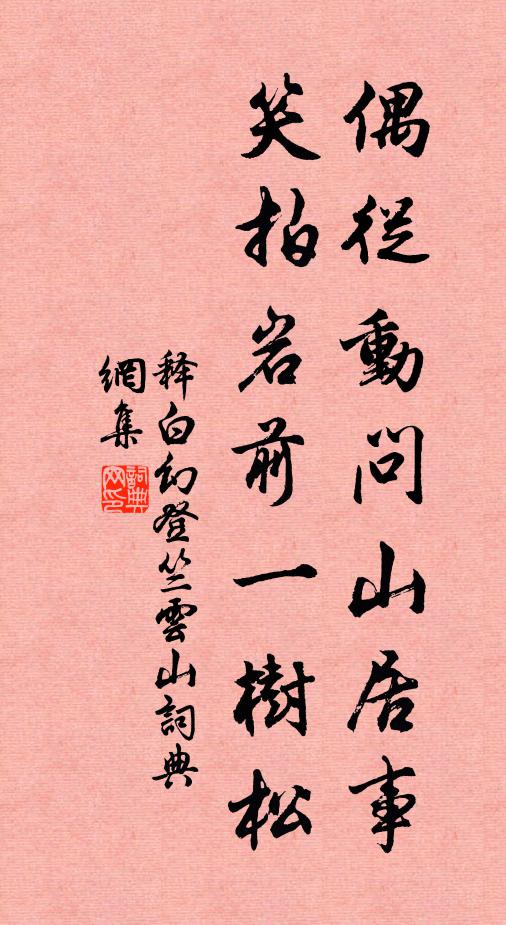 偶從動問山居事
笑拍岩前一樹松
释白幻登竺雲山詞典
網集
詞典網印